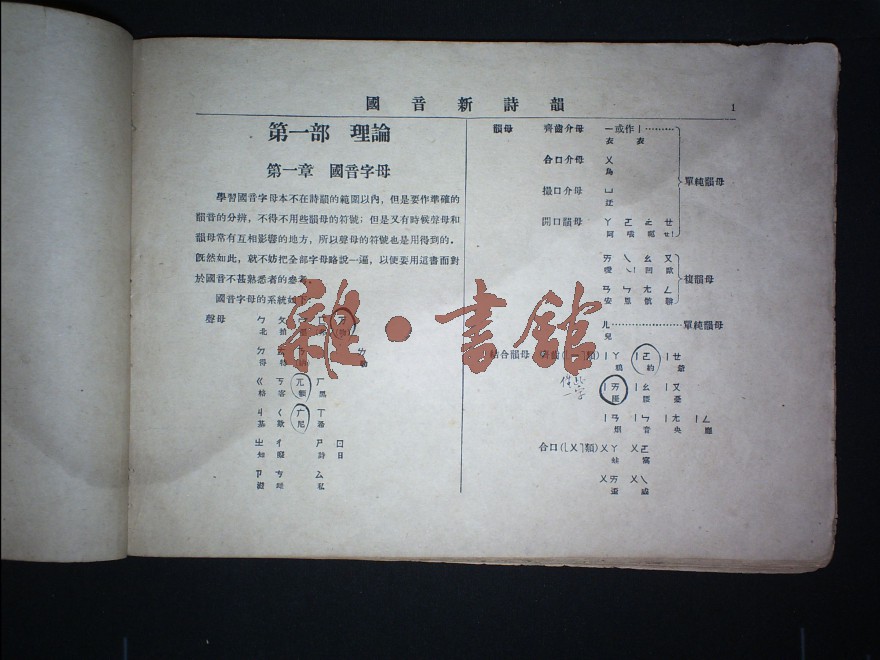 國音新詩韻 1
第一部 理論
第一章 國音字母
學習國音字母本不在詩韻的範圍以內,但是要作準確的
韻音的分辨,不得不用些韻母的符號;但是又有時候聲母和
韻母常有互相影響的地方,所以聲母的符號也是用得到的。
旣然如此,就不妨把全部字母略說一遍,以便要用這書而對
於國音不甚熟悉者的參考。
國音字母的系統如下
聲母 ㄅ ㄆ ㄇ ㄈ ㄪ
北
ㄉ ㄊ ㄋ ㄌ
得 特
ㄍ ㄎ ㄫ ㄏ
格 客 黑
ㄐ ㄑ ㄬ ㄒ
基 欺 尼 希
ㄓ ㄔ ㄕ ㄖ
知 詩 日
ㄗ ㄘ ㄙ
私
韻母 齊齒介母 一或作丨………
衣 衣
合口介母 ㄨ
烏
撮口介母 ㄩ
迂
開口韻母 ㄚ ㄛ ㄜ ㄝ
阿
單純韻母
ㄞ ㄟ ㄠ ㄡ
歐
ㄢ ㄣ ㄤ ㄥ
安 恩
複韻母
ㄦ………………單純韻母
兒
結合韻母 齊齒(「一」類) 丨ㄚ 丨ㄛ 丨ㄝ
鴉 約 爺
丨ㄞ 丨ㄠ 丨ㄡ
崖 腰 憂
丨ㄢ 丨ㄣ 丨ㄤ 丨ㄥ
烟 音 央 鷹
合口(「ㄨ」類) ㄨㄚ ㄨㄛ
蛙 窩
ㄨㄞ ㄨㄟ
歪 威
雜·書館